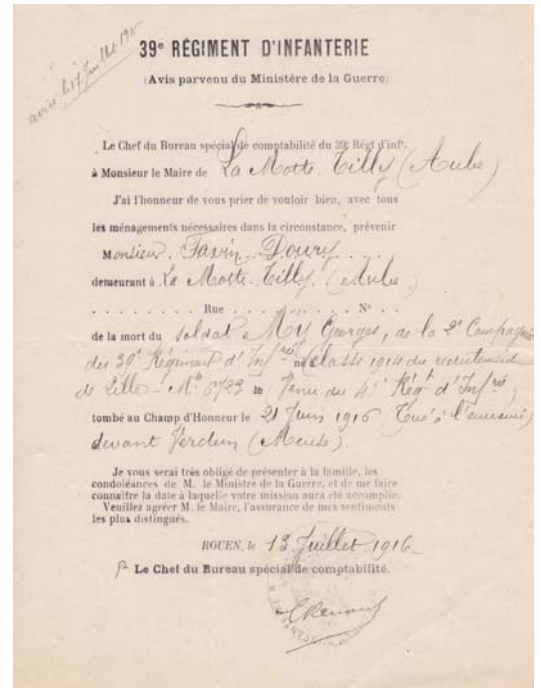 39e RÉGIMENT D'INFANTERIE
(Avis parvenu du Ministère de la Guerre)
Le Chef du Bureau spécial de comptabilité du 39e Régt d'infie.
à Monsieur le Maire de La Motte Tilly (Aube)
J'ai l'honneur de vous prier de vouloir bien, avec tous
les ménagements nécessaires dans la circonstance, prévenir
Monsieur
demeurant à La Motte-Tilly (Aube)
Rue No
de la mort du soldat Georges, de la 2e Compagnie
du 39e Régiment d'Infrie né (classe 1914 du recrutement
de Lille - Mle 6723 le (Venu du 4 Régt d'Infrie)
tombé au Champ d'Honneur le 21 Juin 1916 (Tué à l'ennemi)
devant Verdun (Meuse).
Je vous serai très obligé de présenter à la famille, les
condoléances de M. le Ministre de la Guerre, et de me faire
connaître la date à laquelle votre mission aura été accomplie.
Veuillez agréer M. le Maire, l'assurance de mes sentiments
les plus distingués.
ROUEN, le 13 Juillet 1916
Le Chef du Bureau spécial de comptabilité.